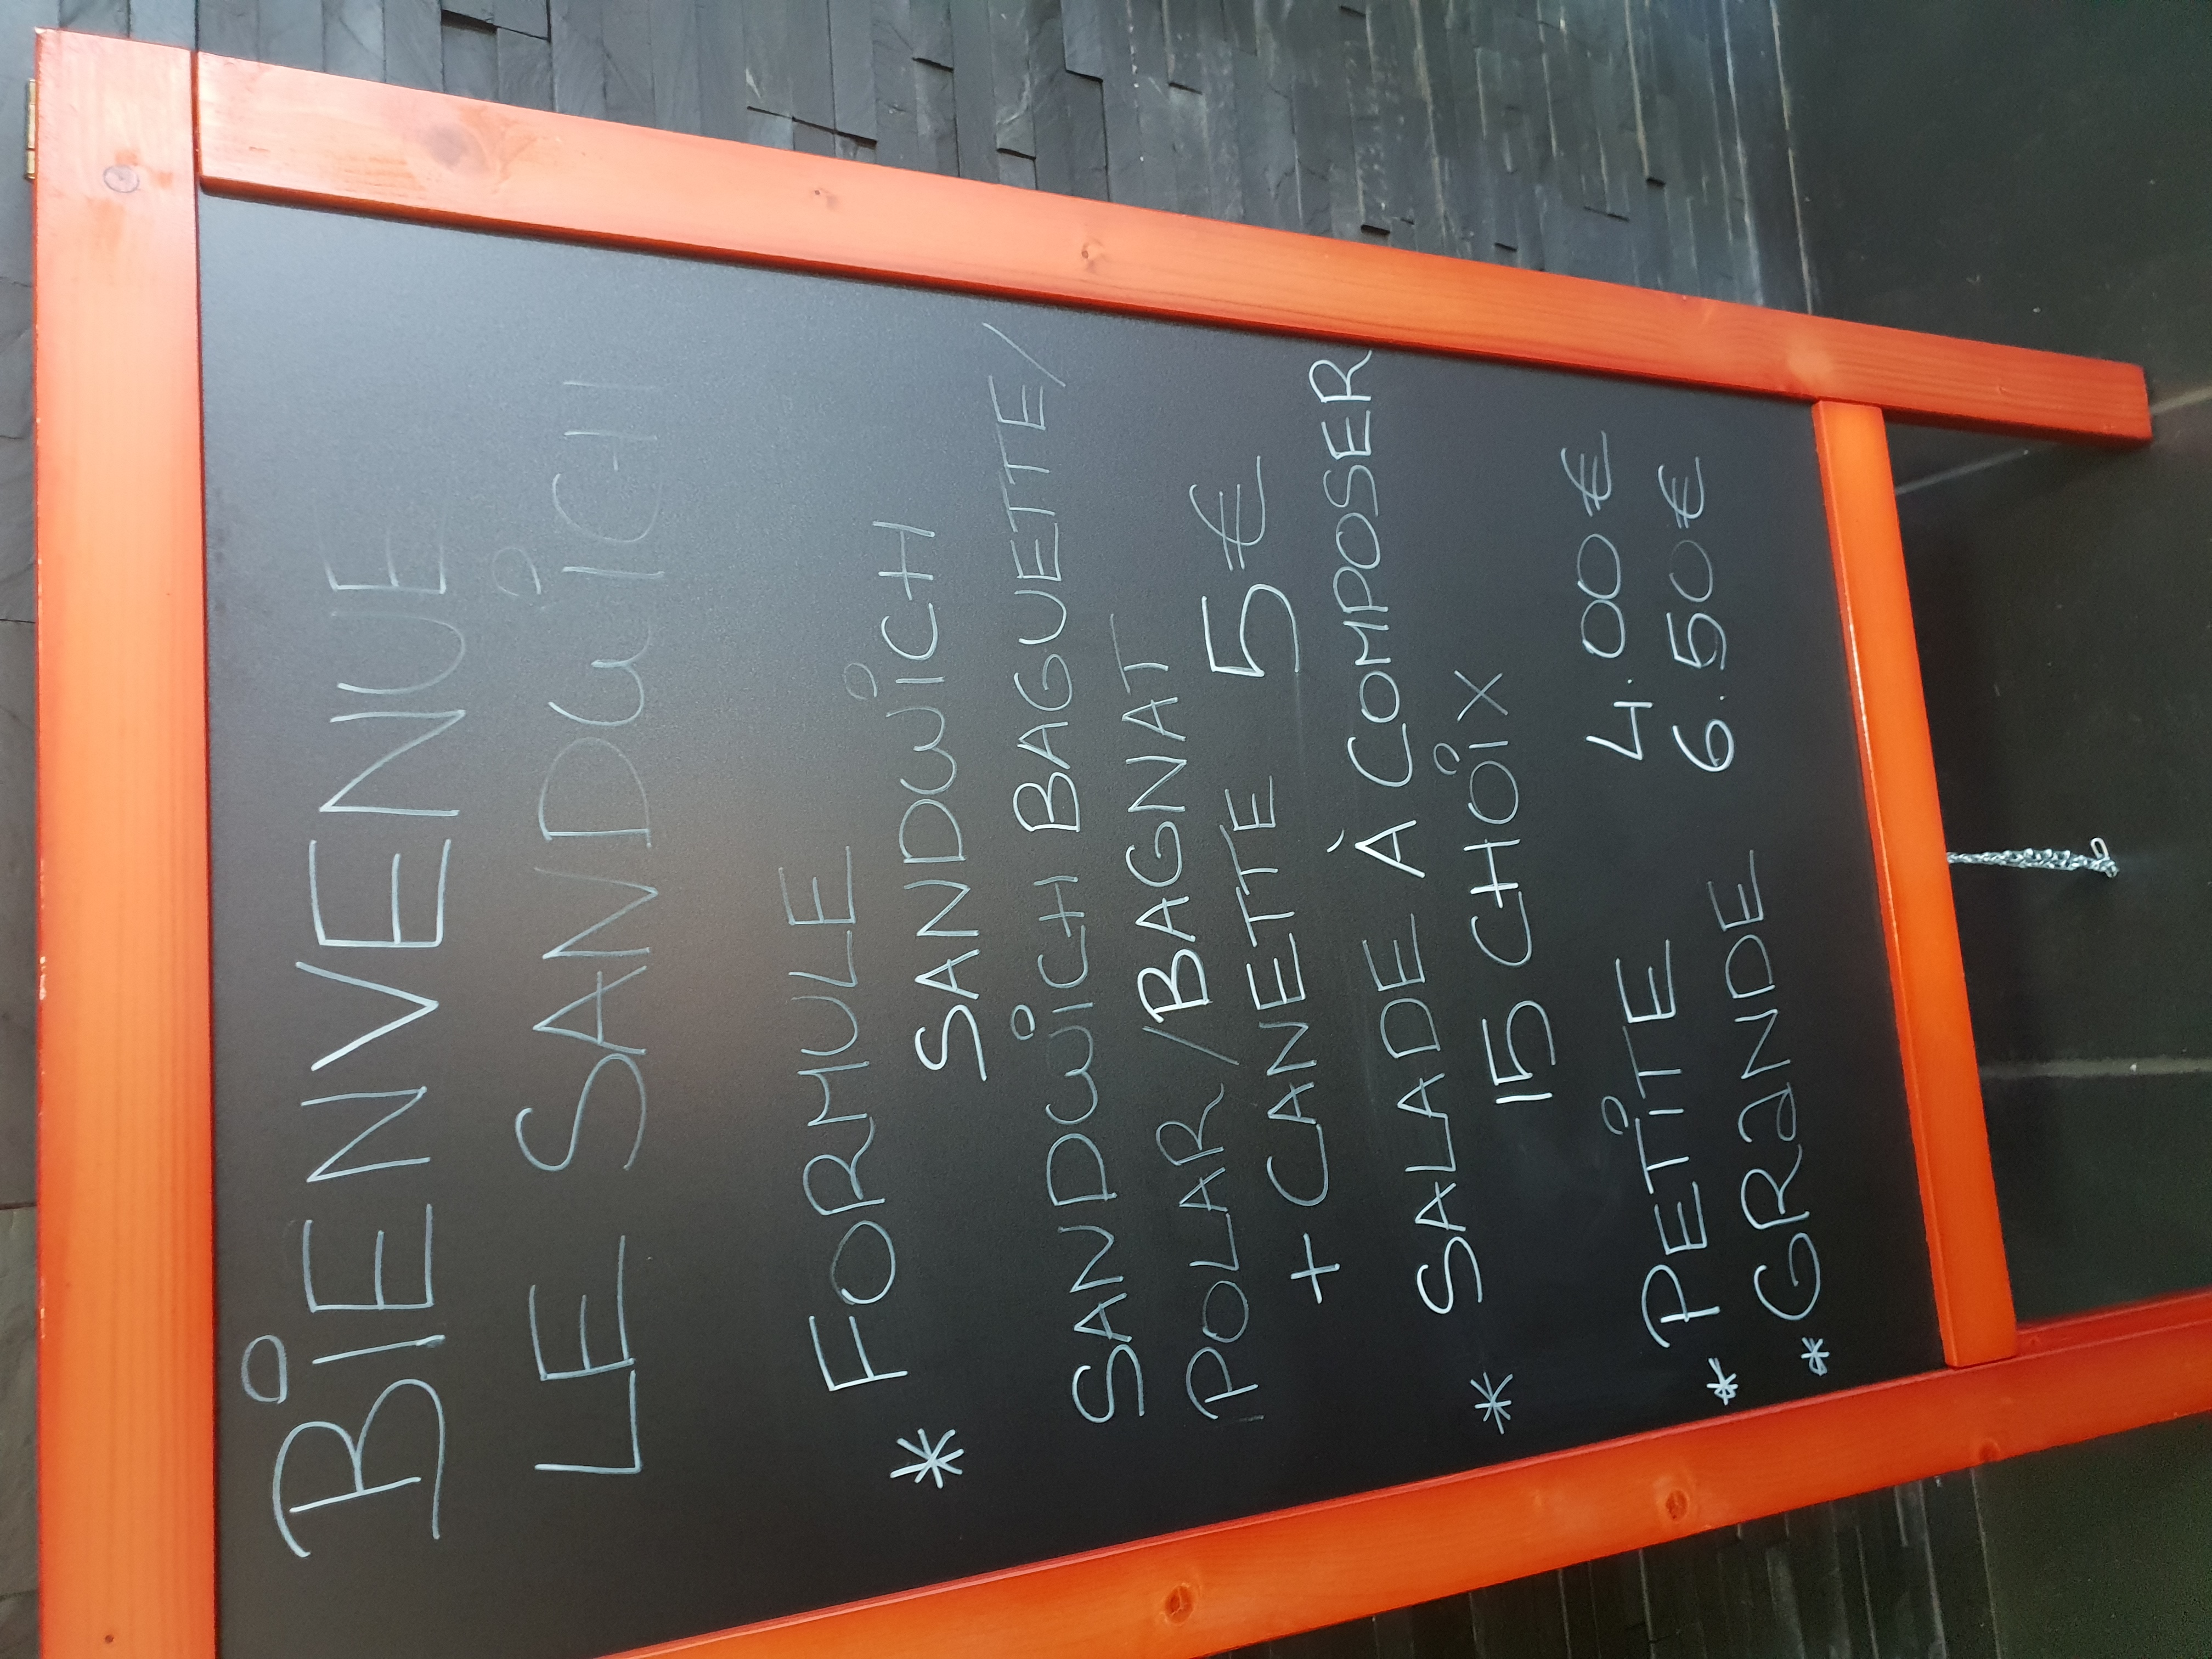 BIENVENUE
LE SANDWICH
* FORMULE
SANDWICH
SANDWICH BAGUETTE/
POLAR/BAGNAT
+ CANETTE 5€
* SALADE À COMPOSER
15 CHOIX
* PETITE 4.00€
* GRANDE 6.50€